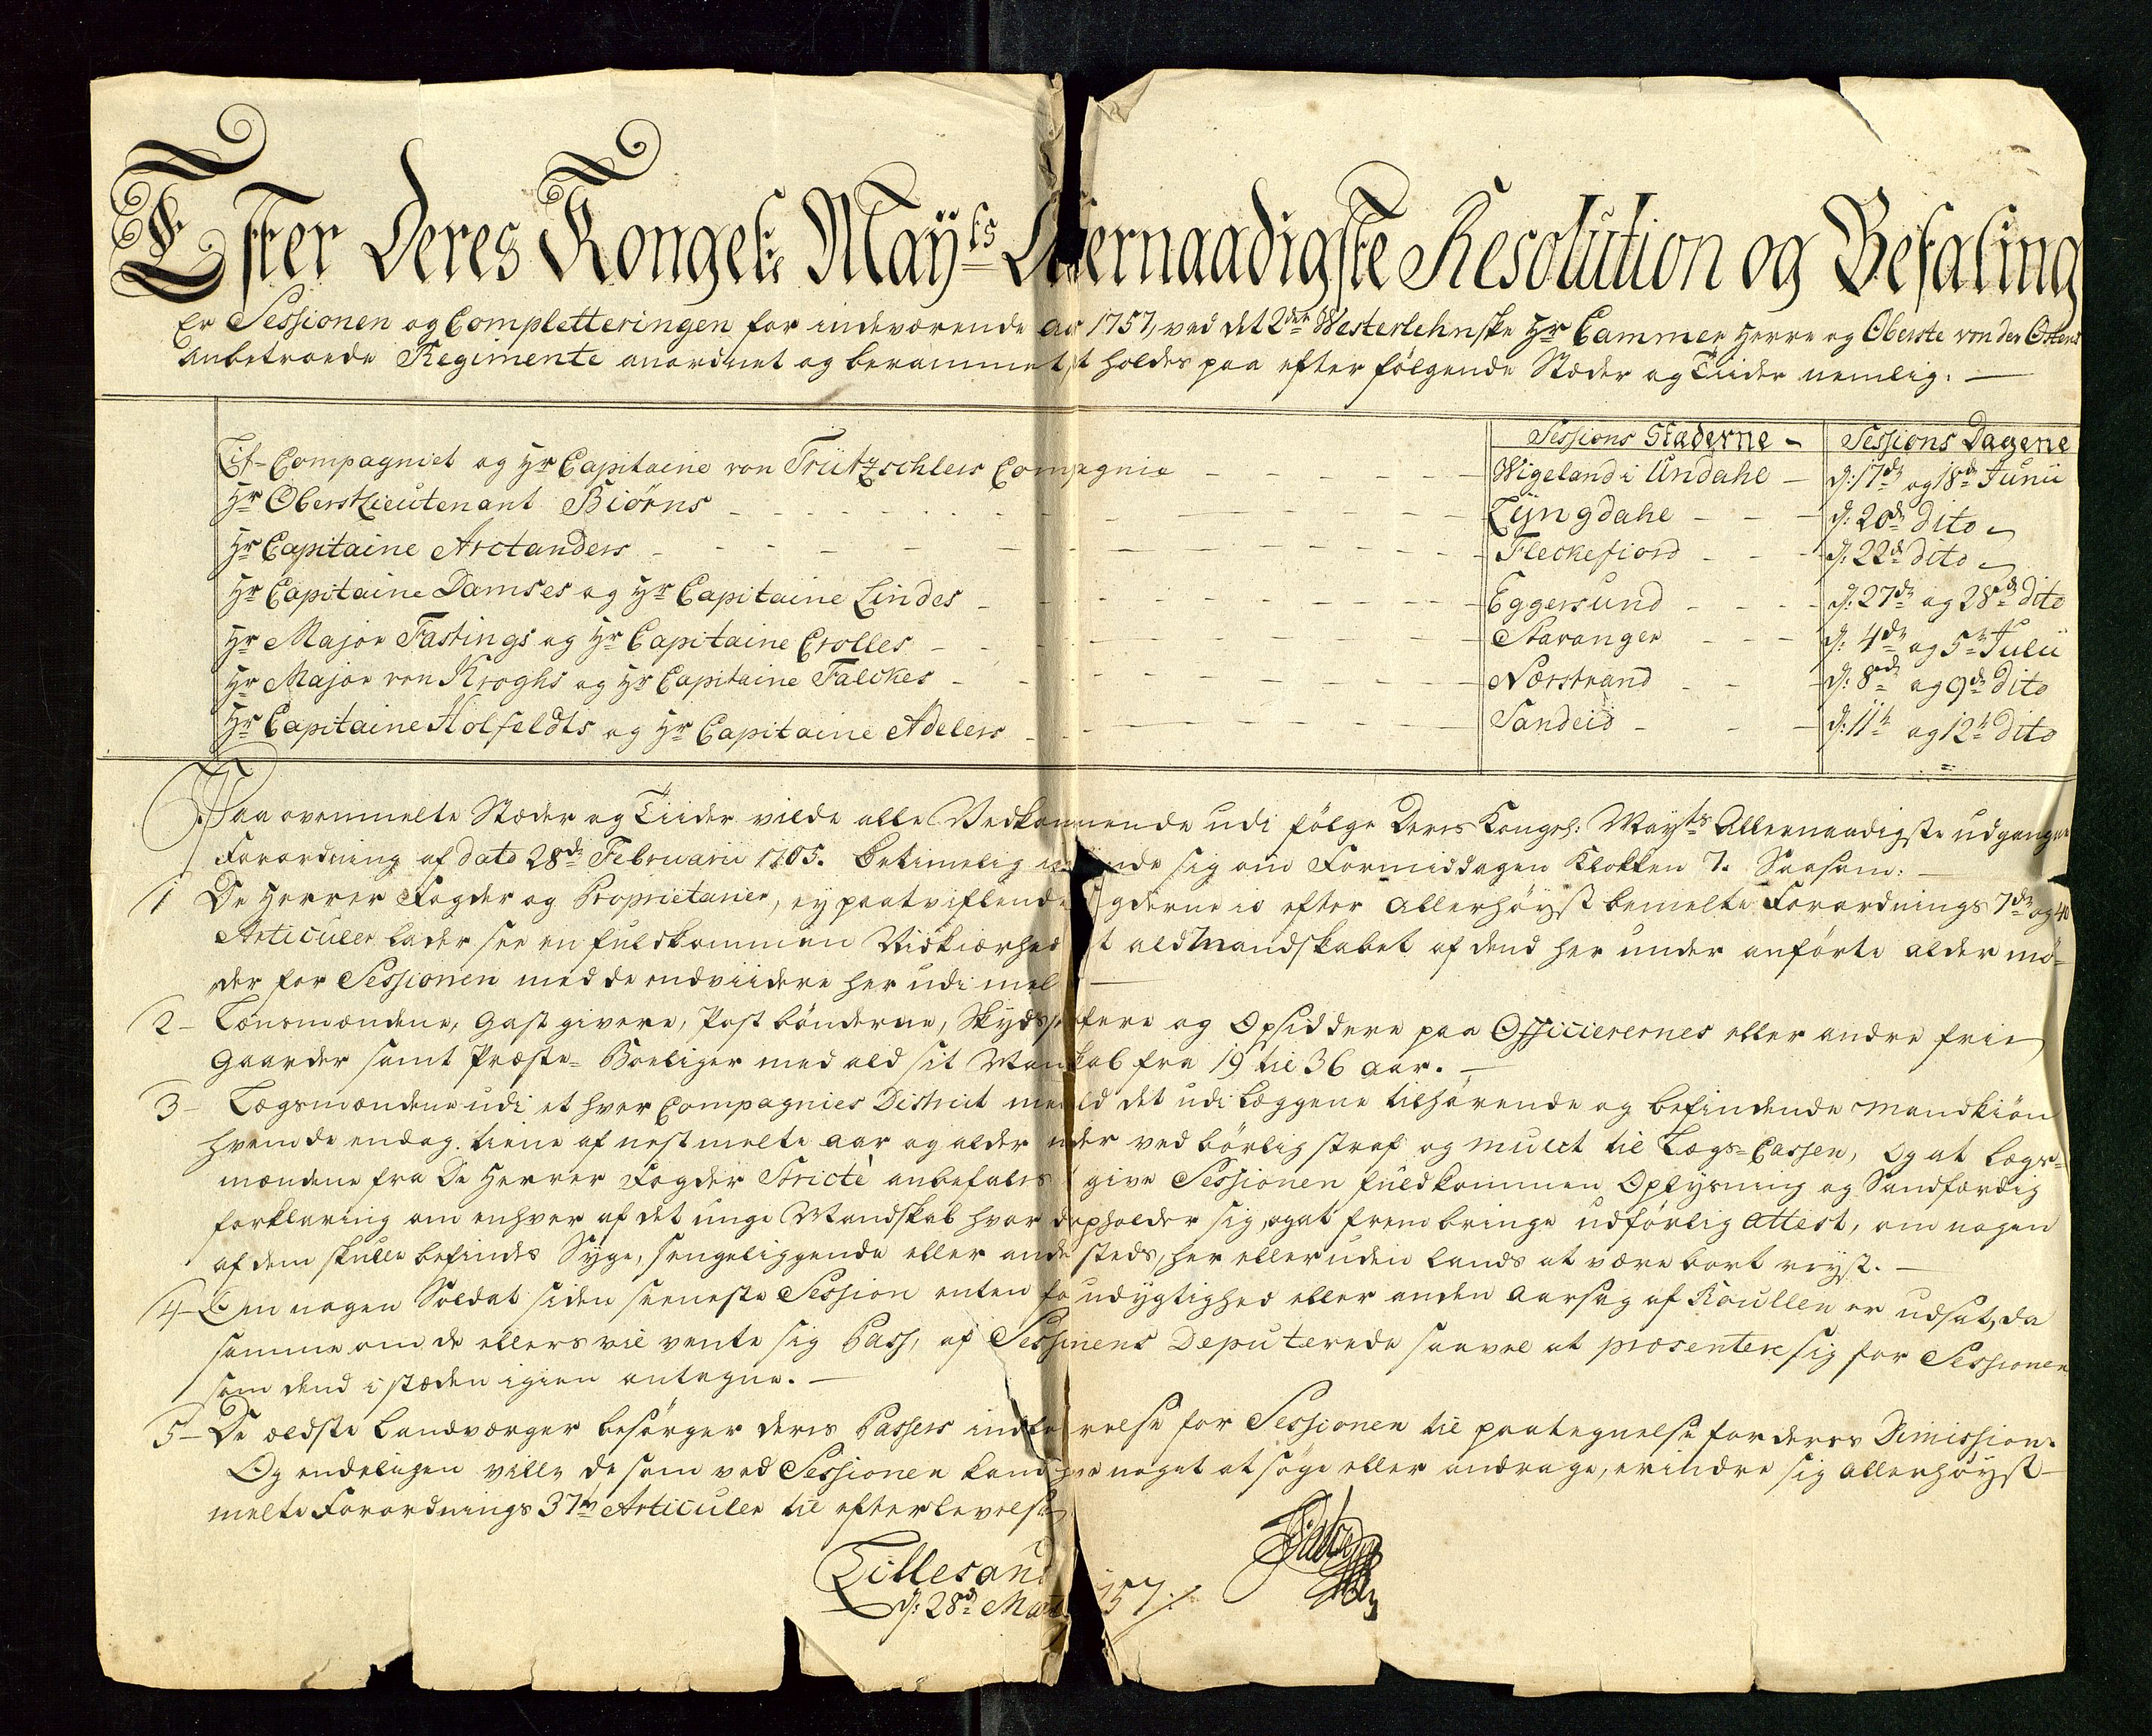 Efter Deres Kongel: Mayts Allernaadigste Resolution og Befaling
Er Sessionen og Completteringen for indeværende aar 1757, ved det 2det Westerlehnske Hr Cammer Herre og Oberste von der Ostens
Anbetroede Regimente anordnet og berammet at holdes paa efter følgende Stæder og Tiider nemlig. —
Sessions Stæderne — Sessions Dagene
Lif-Compagniet og Hr Capitaine von Trützschlers Compagnie — Wigeland i Undahl — d: 17de og 18de Junii
Hr Oberstlieutenant Biörns — Lÿngdahl — d: 20de dito
Hr Capitaine Arctanders — Fleckefiord — d: 22de dito
Hr Capitaine Damses og Hr Capitaine Lindes — Eggersund — d: 27de og 28de dito
Hr Major Fastings og Hr Capitaine Crolles — Stavanger — d: 4de og 5te Julii
Hr Major von Kroghs og Hr Capitaine Falckes — Nærstrand — d: 8de og 9de dito
Hr Capitaine Holfeldts og Hr Capitaine Adelers — Sandeid — d: 11te og 12te dito
Paa ovenmelte Stæder og Tiider vilde alle Vedkommende udi følge Deres Kongel: Mayts Allernaadigste udgangne
Forordning af dato 28de Februarii 1705. betimelig sig om Formiddagen Klokken 7. Saasom: —
1 De Herrer Fogder og Proprietarier, ey paatviflende efter allerhöyst bemelte Forordnings 7de og 40
Articuler lader see en fuldkommen Vidkiærhed at ald Mandskabet af dend her under anførte alder mö-
der for Sessionen med de endviidere her udi mel
2 – Lensmændene, Gastgivere, Postbönderne, Skyds og Opsiddere paa Officierernes eller andre frie
Gaarder samt Præste-Boeliger med ald sit Manskab fra 19 til 36 aar. —
3 – Lægsmændene udi et hver Compagnies District med ald det udi Læggene tilhørende og befindende Mandkiön
hvem de endog tiene af nestmelte aar og alder under ved børlig straf og mulct til Lægs-Cassen, Og at Lægs-
mændene fra De Herrer Fogder Stricte anbefales at give Sessionen fuldkommen Oplysning og Sandfærdig
forklaring om enhver af det unge Mandskab hvor de opholder sig, og at frembringe udførlig Attest, om nogen
af dem skulle befindes Syge, sengeliggende eller andensteds, her eller uden Lands at være bort reyst. —
4 – Om nogen Soldat siden seeneste Session enten for udygtighed eller anden Aarsag af Roullen er udsat, da
samme om de ellers vil vente sig Pass, af Sessionens Deputerede saavel at præsentere sig for Sessionen
som dend i stæden igien antagne. —
5 – De ældste Landværger besörger deres Passers indleverelse for Sessionen til paategnelse for deres Dimission.
Og endeligen ville de som ved Sessionen kand have noget at søge eller andrage, erindre sig Allerhöyst-
melte Forordnings 37te Articuler til efterlevelse
Lillesand
d: 28de Mart 1757 ./.